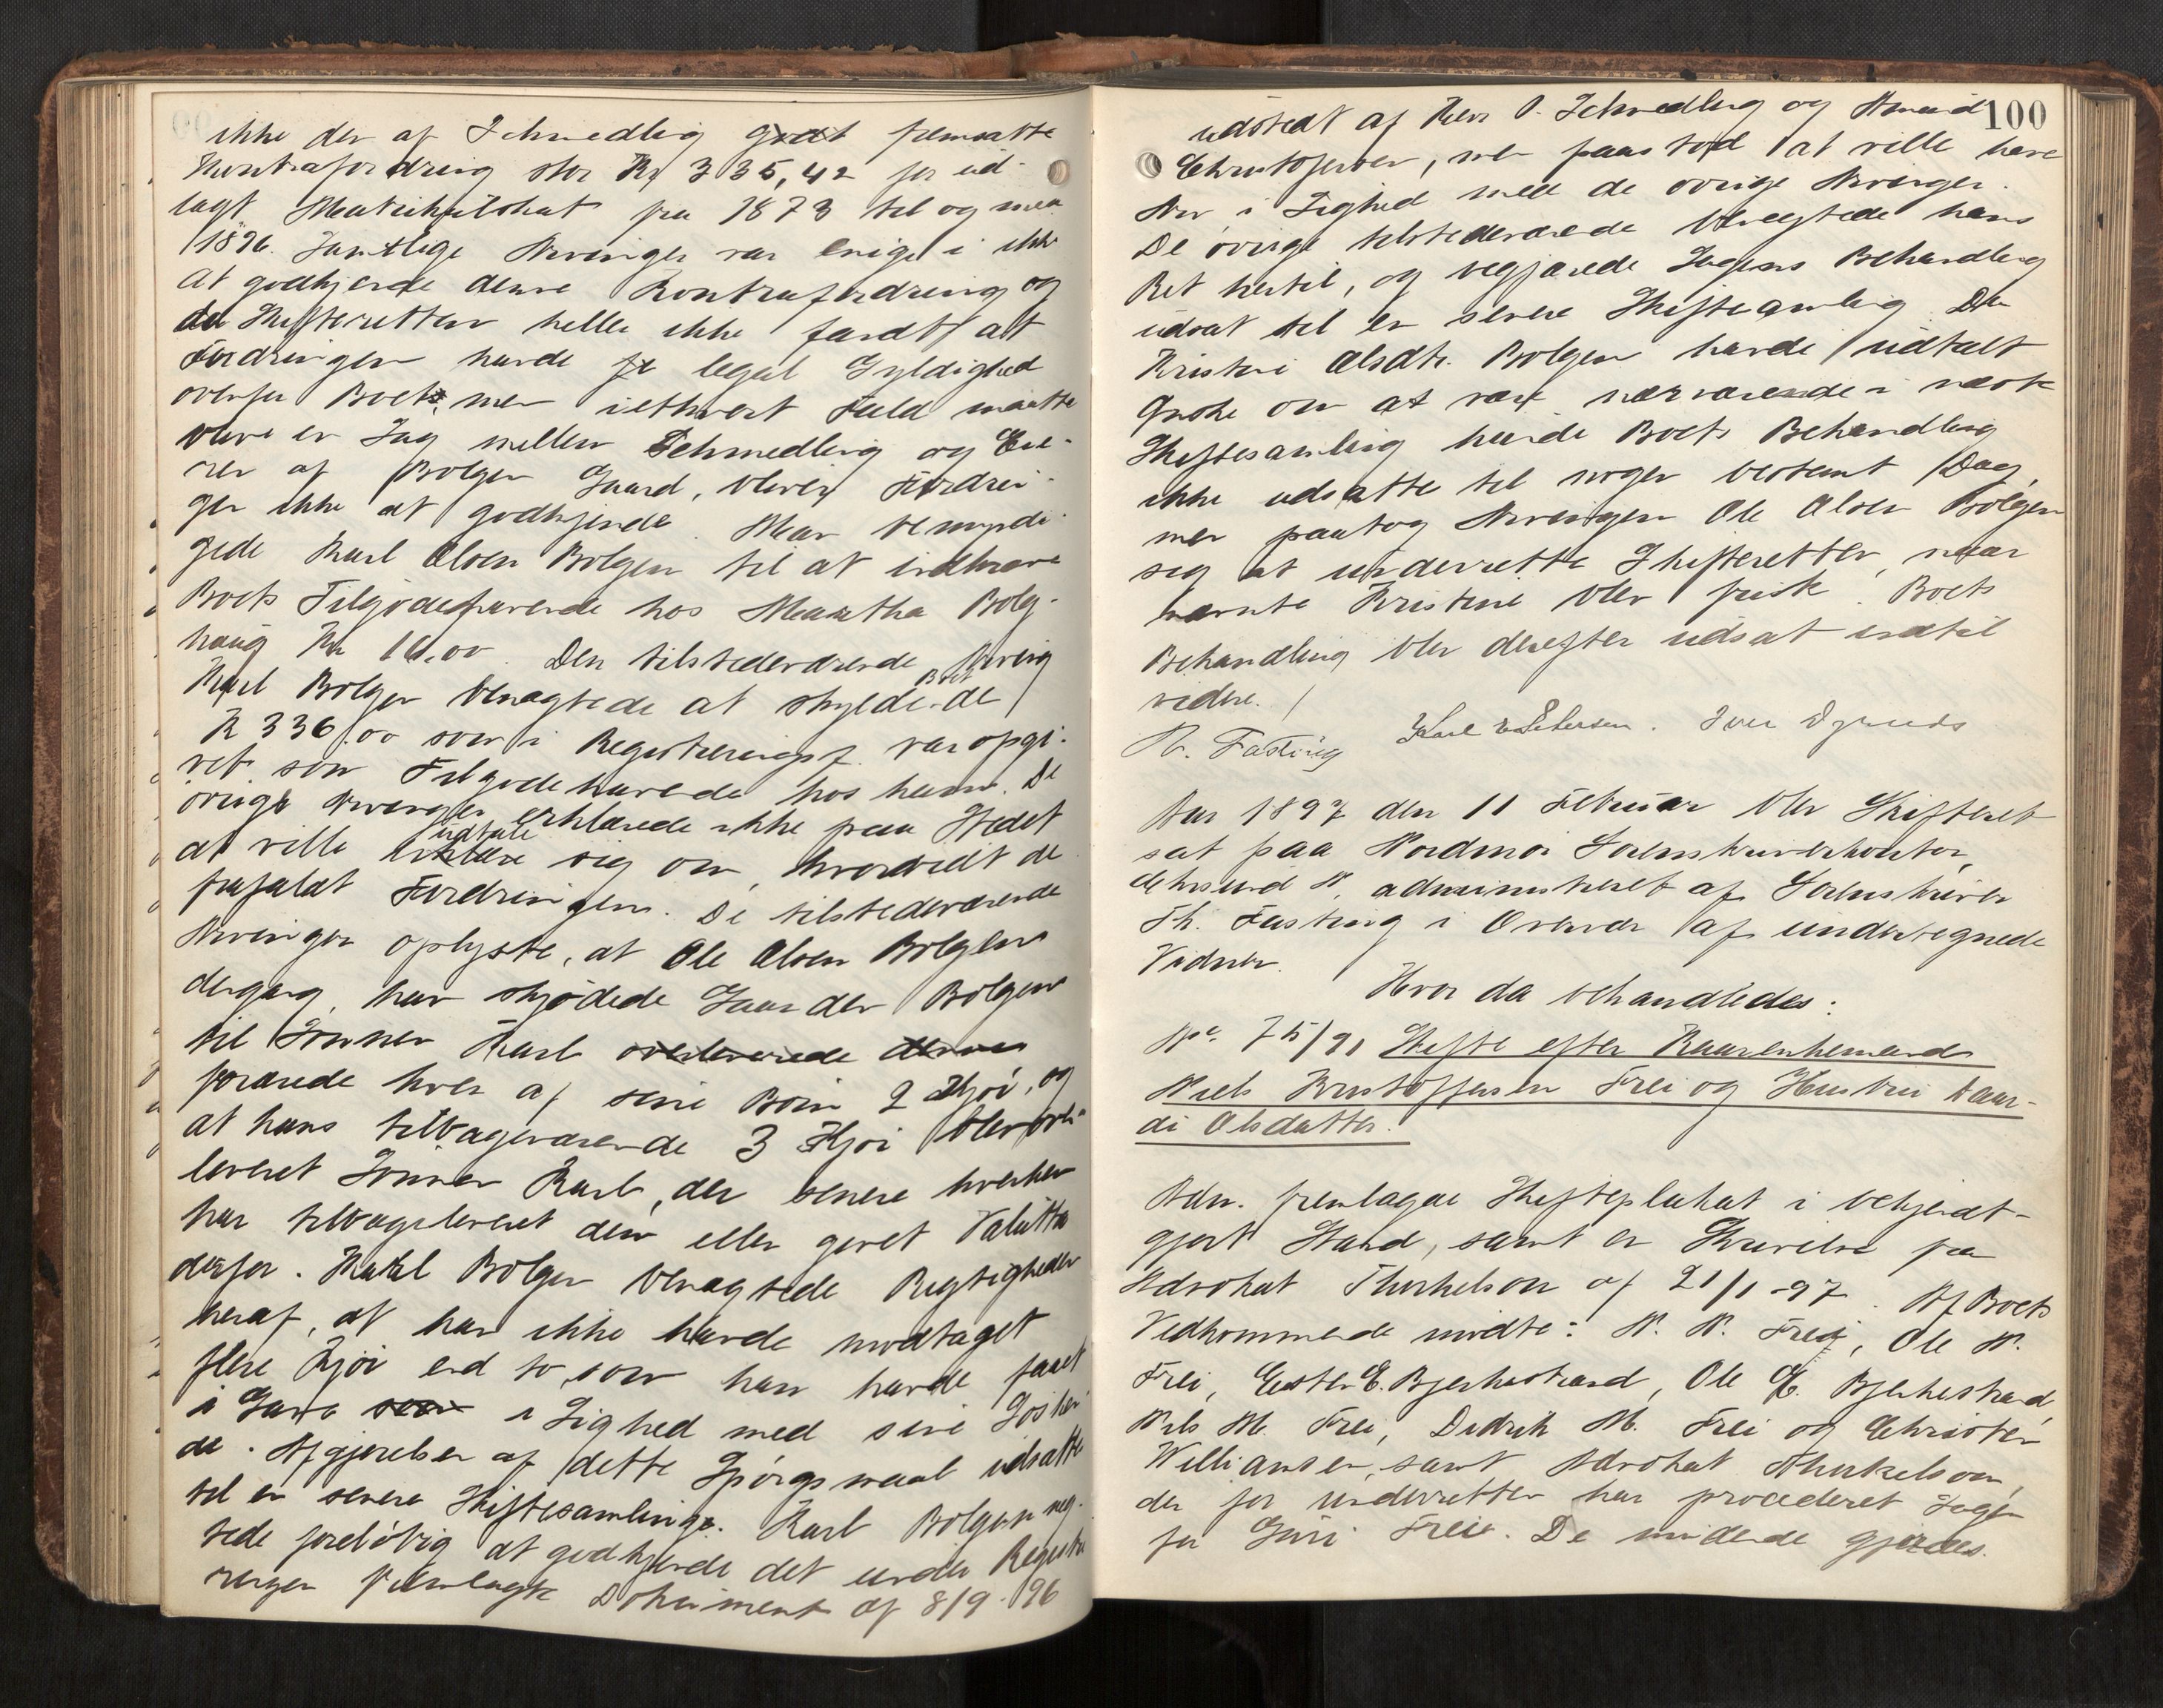 ikke den af Schmedling godt fremsatte
Kontrafordring stor Kr 335,42 for ud-
lagt Matrikulskat fra 1873 til og med
1896. Samtlige Arvinger var enige i ikke
at godkjende denne Kontrafordring og
da Skifteretten heller ikke fandt at
Fordringen havde legal Gyldighed
overfor Boet, men i ethvert Fald maatte
være en Sag mellem Schmedling og Eie-
ren af Bolgen Gaard, blev Fordrin-
gen ikke at godkjende. Man bemyndi-
gede Karl Olsen Bolgen til at indkræve
Boets Tilgodehavende hos Martha Bolg-
haug Kr 10.00. Den tilstedeværende Arving
Karl Bolgen benægtede at skylde Boet de
K 336.00 som i Registreringsf. var opgi-
vet som Tilgodehavende hos ham. De
övrige Arvinger erklærede ikke paa Stedet
at ville udtale sig om, hvorvidt de
frafaldt Fordringen. De tilstedeværende
Arvinger oplyste, at Ole Olsen Bolgen
dengang han skjödede Gaarden Bolgen
til Sönnen Karl overleverede denne
forærede hver af sine Börn 2 Kjör, og
at hans tilbageværende 3 Kjör blev over-
leveret Sönnen Karl, der senere hverken
har tilbageleveret dem eller gevet Valutta
derfor. Karl Bolgen benægtede Rigtigheden
heraf, at han ikke havde modtaget
flere Kjör end to, som han havde faaet
i Gave som i Lighed med sine Sösken-
de. Afgjörelsen af dette Spörgsmaal udsattes
til en senere Skiftesamling. Karl Bolgen neg-
tede forelöbig at godkjende det under Registre-
ringen fremlagte Dokument af 8/9 - 96
100
udstedt af Herr O. Schmedling og
Christoffersen, men paastod at ville have
Arv i Lighed med de övrige Arvinger.
De övrige tilstedeværende benægtede hans
Ret hertil, og begjærede Sagens Behandling
udsat til en senere Skiftesamling. Da
Kristine Olsdtr. Bolgen havde udtalt
Önske om at være nærværende i næste
Skiftesamling burde Boets Behandling
ikke udsættes til nogen bestemt Dag,
men paatog Arvingen Ole Olsen Bolgen
sig at underrette Skifteretten, naar
nævnte Kristine blev frisk. Boets
Behandling blev derefter udsat indtil
videre. /
Th. Fasting Karl E Petersen. Iver
Aar 1897 den 11 Februar blev Skifteret
sat paa Nordmör Sorenskriverkontor,
Kr.sund N, administreret af Sorenskriver
Th. Fasting i Overvær af undertegnede
Vidner.
Hvor da behandledes:
No. 75/91 Skifte efter Kaarenkemand
Niels Kristoffersen Frei og Hustru Gau-
di Olsdatter.
Adm. fremlagde Skifteplakat i bekjendt-
gjort Stand, samt en Skrivelse fra
Advokat Thorkelson af 21/1-97. Af Boets
Vedkommende mödte: N. N. Frei, Ole N.
Frei, E. Bjerkestrand, Ole E. Bjerkestrand,
Nils M. Frei, Didrik M. Frei og Christen
Williamsen, samt Advokat Thorkelson,
der for Underretten har procederet Sagen
for Frei. De mödende gjordes